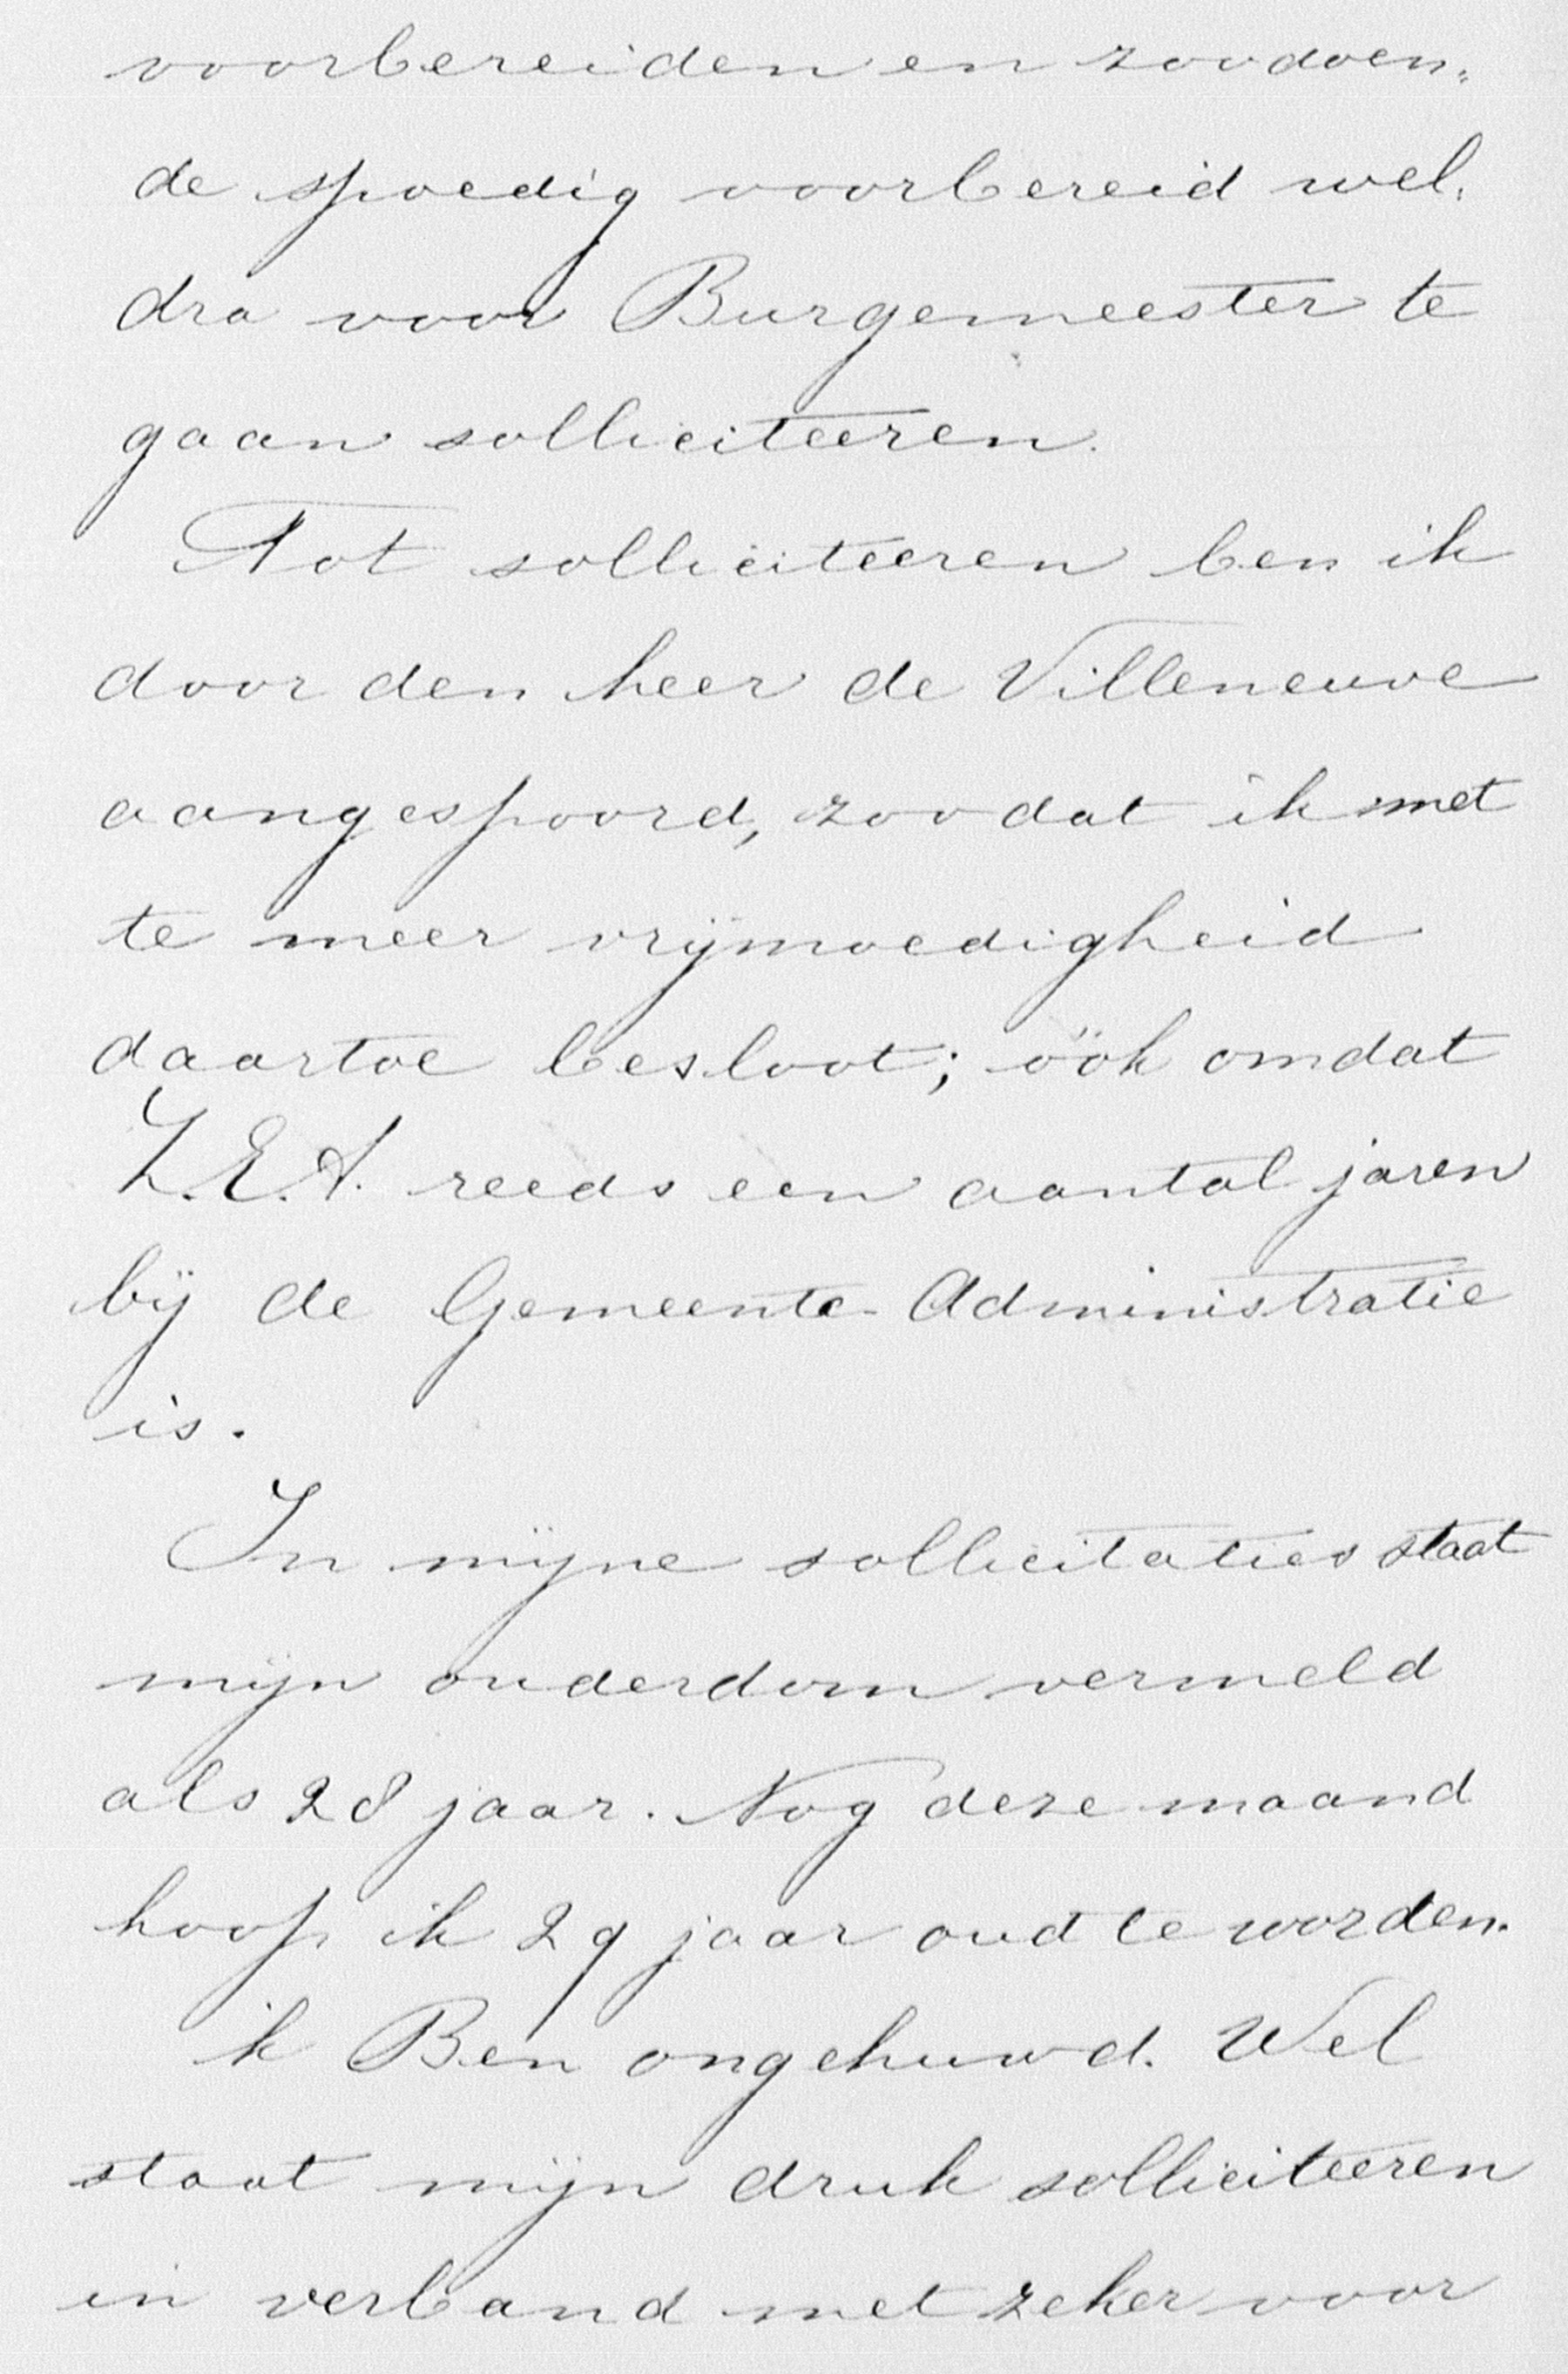 voorbereiden en zoodoen„
de spoedig voorbereid wel„
dra voor Burgemeester te
gaan solliciteeren.
Tot solliciteeren ben ik
door den heer de Villeneuve
aangespoord, zoodat ik met
te meer vrijmoedigheid
daartoe besloot; óók omdat
Z.E.A. reeds een aantal jaren
bij de Gemeente-Administratie
is.
In mijne sollicitaties staat
mijn ouderdom vermeld
als 28 jaar. Nog deze maand
hoop ik 29 jaar oud te worden.
ik Ben ongehuwd. Wel
staat mijn druk solliciteeren
in verband met zeker voor